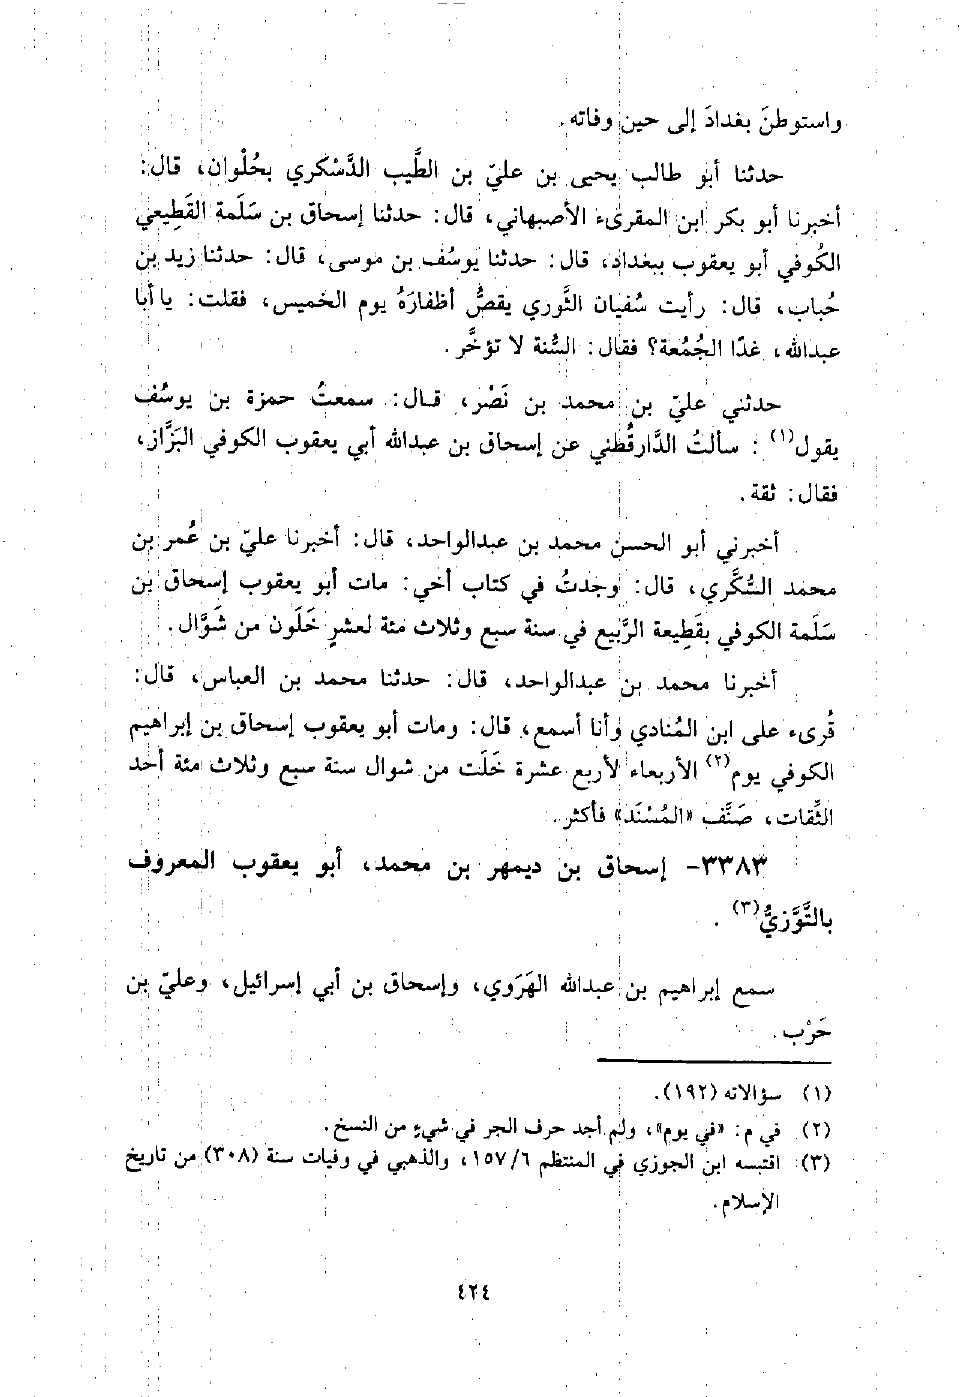 واستوطنَ بغدادَ إلى حين وفاته.
حدثنا أبو طالب يحيى بن عليّ بن الطَّيب الدَّسْكري بحُلْوان، قال:
أخبرنا أبو بكر ابن المقرىء الأصبهاني، قال: حدثنا إسحاق بن سَلَمة القَطِيعي
الكُوفي أبو يعقوب ببغداد، قال: حدثنا يوسُف بن موسى، قال: حدثنا زيد بن
حُباب، قال: رأيت سُفيان الثَّوري يقصُّ أظفارَهُ يوم الخميس، فقلت: يا أبا
عبدالله، غدًا الجُمُعة؟ فقال: السُّنة لا تؤخَّر.
حدثني عليّ بن محمد بن نَصْر، قال: سمعتُ حمزة بن يوسُف
يقول(١): سألتُ الدَّارقُطْني عن إسحاق بن عبدالله أبي يعقوب الكوفي البَزَّاز،
فقال: ثقة.
أخبرني أبو الحسن محمد بن عبدالواحد، قال: أخبرنا عليّ بن عُمر بن
محمد السُّكَّري، قال: وجدتُ في كتاب أخي: مات أبو يعقوب إسحاق بن
سَلَمة الكوفي بقَطِيعة الرَّبيع في سنة سبع وثلاث مئة لعشرٍ خَلَون من شَوَّال.
أخبرنا محمد بن عبدالواحد، قال: حدثنا محمد بن العباس، قال:
قُرىء على ابن المُنادي وأنا أسمع، قال: ومات أبو يعقوب إسحاق بن إبراهيم
الكوفي يوم(٢) الأربعاء لأربع عشرة خَلَت من شوال سنة سبع وثلاث مئة أحد
الثِّقات، صَنَّف «المُسْنَد» فأكثر.
٣٣٨٣- إسحاق بن ديمهر بن محمد، أبو يعقوب المعروف
بالتَّوَّزيُّ(٣).
سمع إبراهيم بن عبدالله الهَرَوي، وإسحاق بن أبي إسرائيل، وعليّ بن
حَرْب.
(١) سؤالاته (١٩٢).
(٢) في م: «في يوم»، ولم أجد حرف الجر في شيءٍ من النسخ.
(٣) اقتبسه ابن الجوزي في المنتظم ٦/ ١٥٧، والذهبي في وفيات سنة (٣٠٨) من تاريخ
الإسلام.
٤٢٤